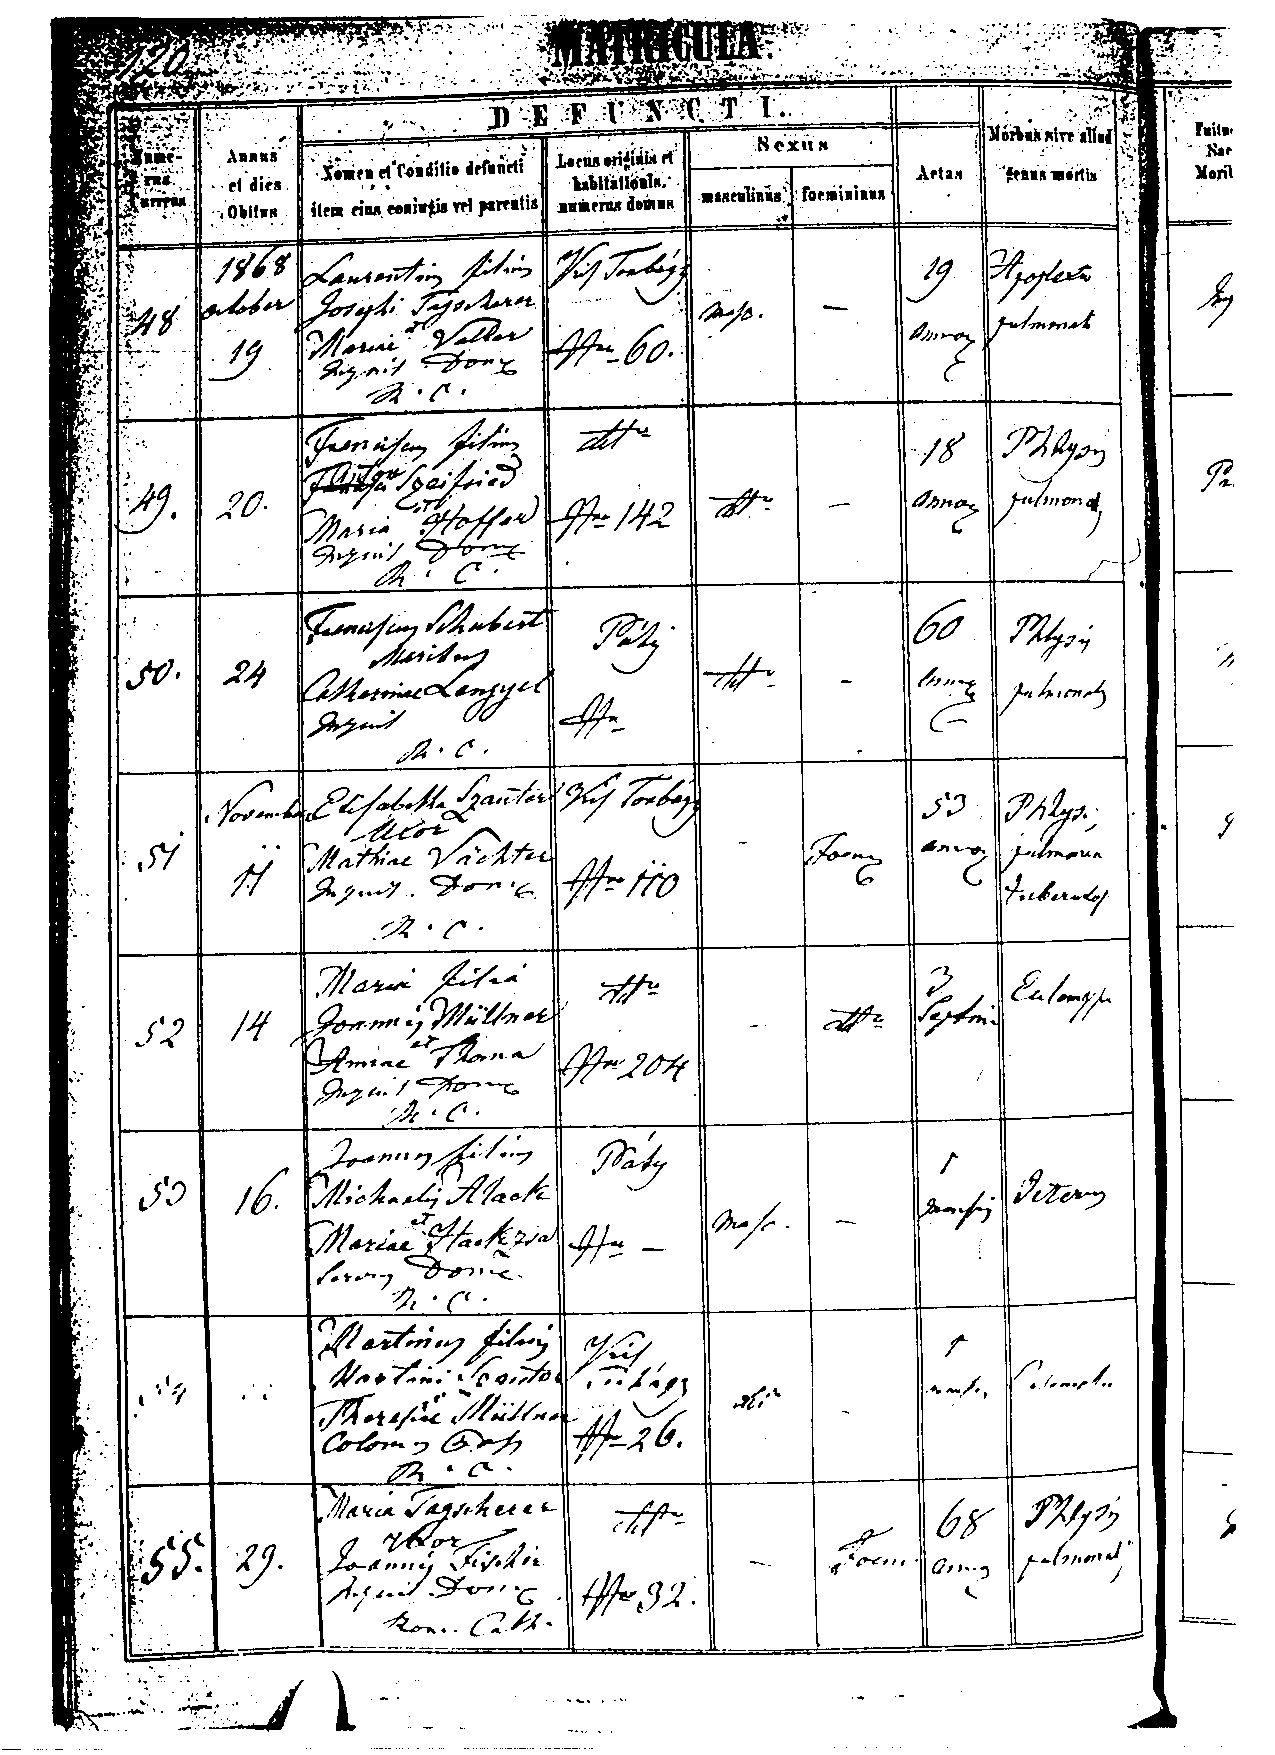 120
MATRICULA.
DEFUNCTI.
Numerus Currens
Annus et dies Obitus
Nomen et Conditio defuncti item eius coniugis vel parentis
Locus originis et habitationis, numerus domus
Sexus
masculinus
foemininus
Aetas
Morbus sive aliud genus mortis
48
1868
october
19
Laurentius filius
Josephi Tagscherer
et
Mariae Valler
Inquil Dom
R. C.
Kis Torbágy
Nro 60.
Masc.
—
19
annor
Apoplexia
pulmonal
49.
20.
Franciscus filius
Szeifried
et
Maria Hoffer
Inquil Dom
R. C.
dtto
Nro 142
dtto
—
18
annor
Phtysis
pulmonal
50.
24
Franciscus Schubert
Maritus
Catharinae Lengyel
Inquil
R. C.
Páty
Nro
dtto
-
60
annor
Phtysis
pulmonal
51
November
11
Elisabetha Szauter
Uxor
Mathiae Vächter
Inquil. Dom.
R. C.
Kis Torbágy
Nro 110
-
Foem
53
annor
Phtys.
pulmonu
tuberculos
52
14
Maria filia
Joannis Müllner
et
Annae Thoma
Inquil Dom
R. C.
dtto
Nro 204
-
dtto
3
Septim
Eclampsi
53
16.
Joannes filius
Michaelis Alack
et
Mariae
Servus Dom.
R. C.
Páty
Nro —
Masc.
—
1
mensis
Icterus
54
Martinus filius
Martini Szautor
et
Theresiae Müllner
Colonus
R. C.
Kis
Torbágy
Nro 26.
dtto
-
1
mensis
Eclampsia
55.
29.
Maria Tagscherer
Uxor
Joannis Fischer
Inquil Dom
Rom. Cath.
dtto
Nro 32.
—
Foem.
68
annor
Phtysis
pulmonal